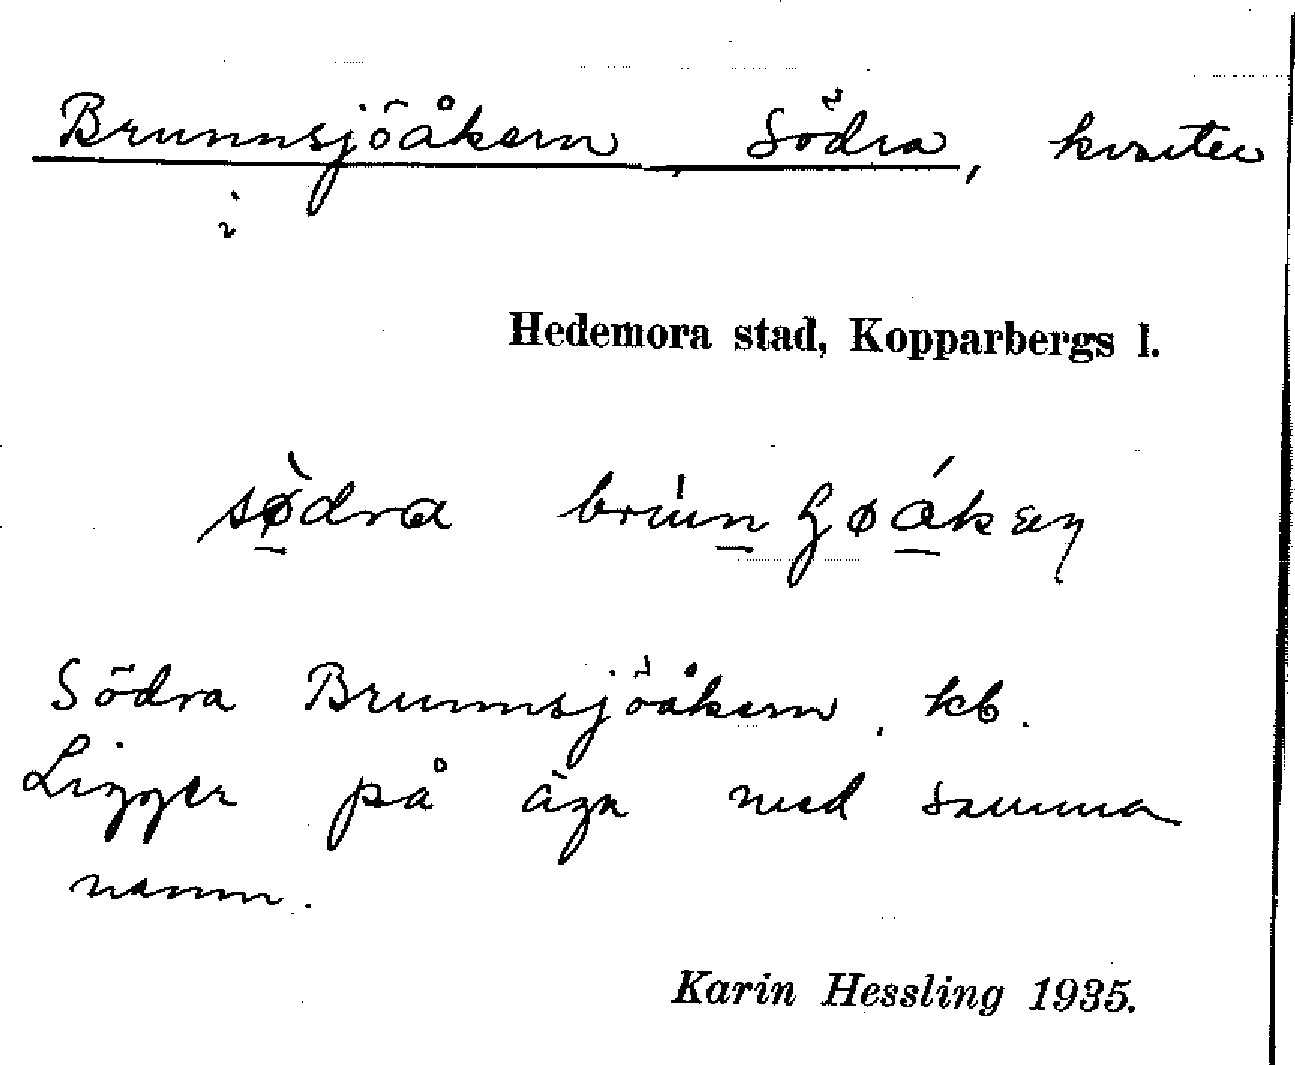 Brunnsjöåkern, Södra, kvarter
i
Hedemora stad, Kopparbergs l.
södra
Södra Brunnsjöåkern, kb.
Ligger på äga med samma
namn.
Karin Hessling 1935.